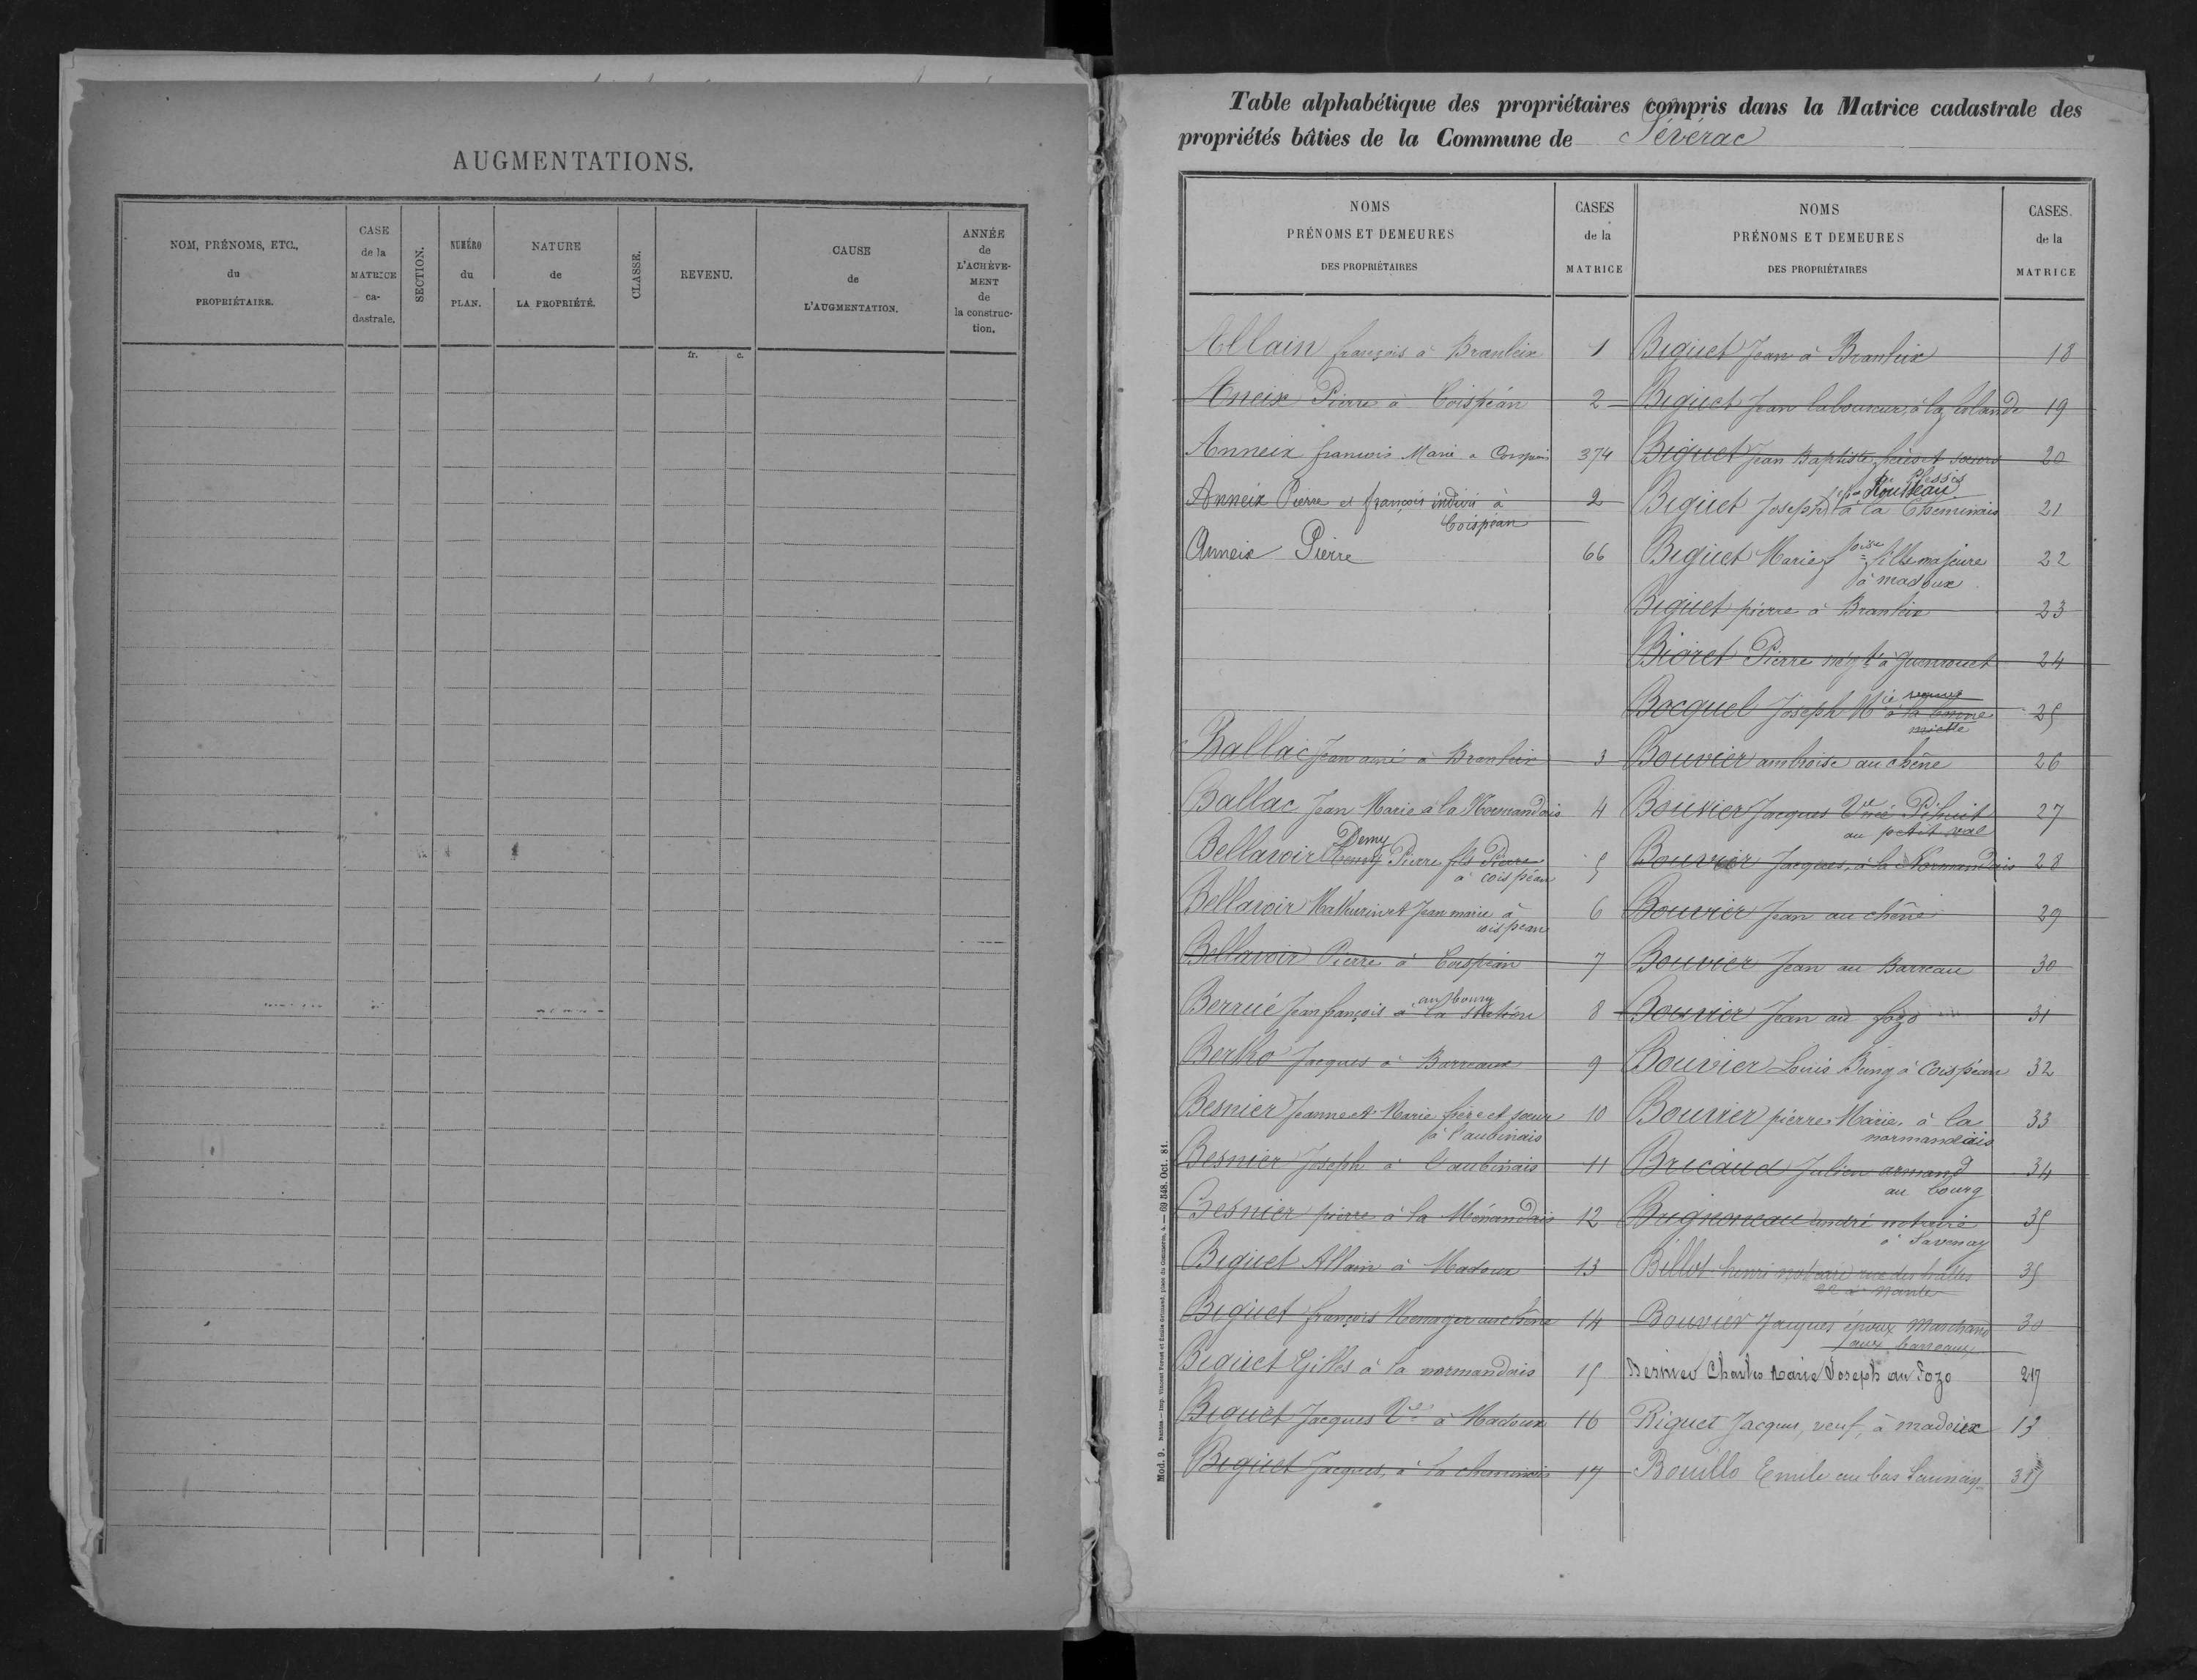 AUGMENTATIONS.
NOM, PRÉNOMS, ETC.,
du
PROPRIÉTAIRE.
CASE
de la
MATRICE
ca-
dastrale.
SECTION.
NUMÉRO
du
PLAN.
NATURE
de
LA PROPRIÉTÉ.
CLASSE.
REVENU.
CAUSE
de
L'AUGMENTATION.
ANNÉE
de
L'ACHÈVE-
MENT
de
la construc-
tion.
fr. c.
Table alphabétique des propriétaires compris dans la Matrice cadastrale des
propriétés bâties de la Commune de Sévérac
NOMS
PRÉNOMS ET DEMEURES
DES PROPRIÉTAIRES
CASES
de la
MATRICE
Allain françois à Branleix 1
Aneix Pierre à Coispéan 2
Anneix francois Marie a 374
Anneix Pierre et françois indivis à 2
Coispéan
Anneix Pierre 66
Ballac Jean ainé à Branleix 3
Ballac Jean Marie à la Normandais 4
Demy
Bellavoir Remy Pierre fils Pierre 5
à coispéan
Bellavoir Mathurin et Jean marie à 6
coispean
Bellavoir Pierre à Coispéan 7
au bourg
Berrué Jean françois à la station 8
Bertho Jacques à Barreaux 9
Besnier Jeanne et Marie frère et soeur 10
à l'aubinais
Besnier Joseph à l'aubinais 11
Besnier pierre à la Ménandais 12
Biguet Allain à Madoux 13
Biguet françois Menager au chêne 14
Biguet Gilles à la normandais 15
Biguet Jacques Ve à Madoux 16
Biguet Jacques, à la cheminais 17
NOMS
PRÉNOMS ET DEMEURES
DES PROPRIÉTAIRES
CASES.
de la
MATRICE
Biguet Jean à Branleix 18
Biguet Jean laboureur, à la lolande 19
Biguet Jean Baptiste, frère et soeurs 20
Plessis
Rousseau
Biguet Joseph à la Cheminais 21
Biguet Marie foise fille majeure 22
à madoux
Biguet pierre à Branleix 23
Bioret Pierre négt à guenrouet 24
Bocquel Joseph Mie à la bonne 25
miette
Bouvier ambroise au chêne 26
Bouvier Jacques Ve née Pihuit 27
au petit val
Bouvier Jacques, à la Normandais 28
Bouvier Jean au chêne 29
Bouvier Jean au Barreau 30
Bouvier Jean au fozo 31
Bouvier Louis Bung à Coispéan 32
Bouvier pierre Marie, à la 33
normandais
Bricaud Julien armand 34
au bourg
Brigneneau andré notaire 35
à Savenay
Billot henri notaire rue des halles 35
22 à Nantes
Bouvier Jacques époux Marchand 30
aux barreaux
Besnier Charles Marie Joseph au Fozo 217
Biguet Jacques, veuf, à madoux 13
Bouillo Emile au bas Launay
Mod. 9. Nantes.—Imp. Vincent Forest et Émile Grimaud, place du Commerce, 4. — 69 548. Oct. 81.